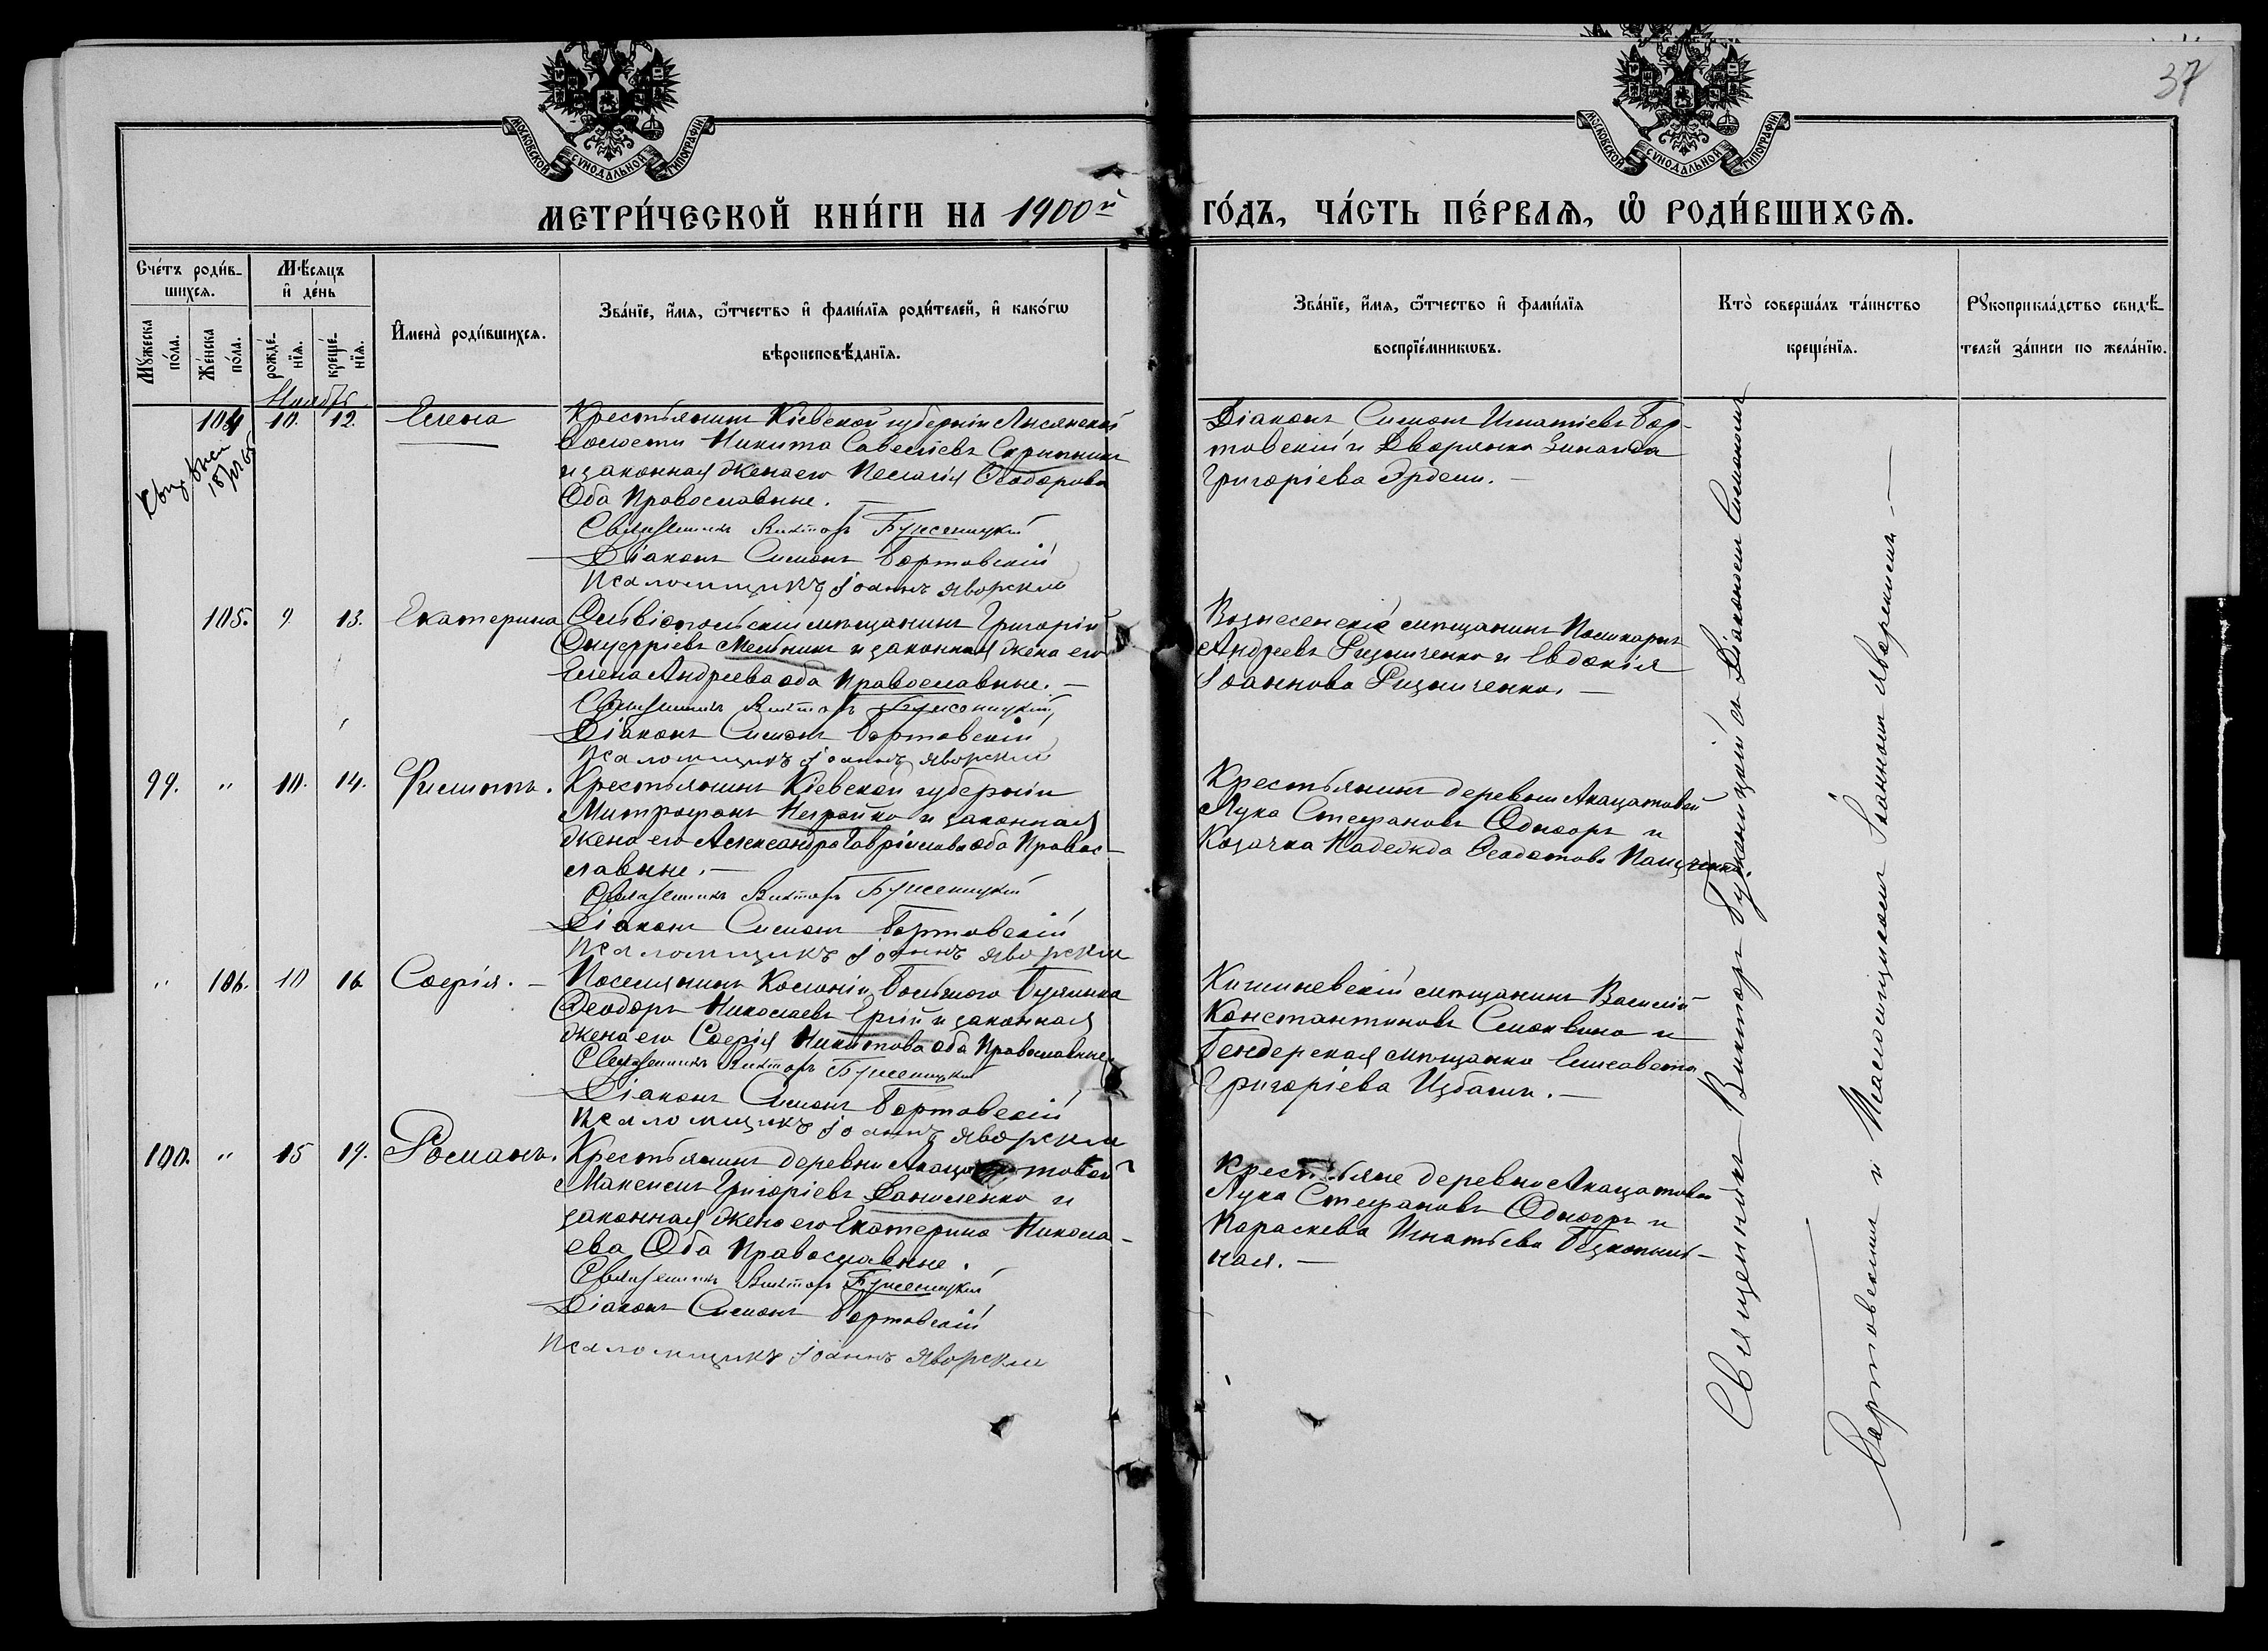 37
МОСКОВСКОЙ СУНОДАЛЬНОЙ ТИПОГРАФІИ
МОСКОВСКОЙ СУНОДАЛЬНОЙ ТИПОГРАФІИ
МЕТРИ́ЧЕСКОЙ КНИ́ГИ НА 1900й ГО́ДЪ, ЧА́СТЬ ПЕ́РВАѦ, Ѽ РОДИ́ВШИХСѦ.
Сче́тъ роди́в-
шихсѧ.
Мꙋ́жеска по́ла.
Же́нска по́ла.
Мѣ́сѧцъ
и҆ де́нь
рожде́-
нїѧ.
креще́-
нїѧ.
И҆мена̀ роди́вшихсѧ.
Зва́нїе, и҆́мѧ, ѻ҆́тчество и҆ фами́лїѧ роди́телей, и҆ како́гѡ
вѣроисповѣ́данїѧ.
Зва́нїе, и҆́мѧ, ѻ҆́тчество и҆ фами́лїѧ
воспрїе́мникѡвъ.
Кто̀ соверша́лъ та́инство
креще́нїѧ.
Рꙋкоприкла́дство свидѣ́-
телей за́писи по жела́нїю.
Ноябрь
104 10. 12. Елена
Крестьянинъ Кіевской губерніи Лисянской
волости Никита Савелiевъ Скрипникъ
и законная жена его Пелагія Ѳеодорова
Оба Православные.
Священникъ Викторъ Буженицкій
Діаконъ Симонъ Бортовскій
Псаломщикъ Іоаннъ Яворскій
Діаконъ Симонъ Игнатіевъ Бор-
товскій и Дворянка Зинаида
Григоріева Эрдели.
105. 9 13. Екатерина
Ольвіопольскій мѣщанинъ Григорій
Онуфріевъ Мельникъ и законная жена его
Елена Андреева оба Православные.
Священникъ Викторъ Буженицкій
Діаконъ Симонъ Бортовскій
Псаломщикъ Іоаннъ Яворскій
Вознесенскіе мѣщанинъ Поликарпъ
Андреевъ Ризниченко и Евдокія
Іоаннова Ризниченко.
99. " 10. 14. Филиппъ.
Крестьянинъ Кіевской губерніи
Митрофанъ Неграйко и законная
жена его Александра Гавріилова оба Правос-
лавные.
Священникъ Викторъ Буженицкій
Діаконъ Симонъ Бортовскій
Псаломщикъ Іоаннъ Яворскій
Крестьянинъ деревни Акацатовой
Лука Стефановъ Однооръ и
Козачка Надежда Ѳеодотова Панченко.
" 106. 10 16 Софія.
Поселянинъ Колоніи Большого Буялыка
Ѳеодоръ Николаевъ и законная
жена его Софія Никитова оба Православные
Священникъ Викторъ Буженицкій
Діаконъ Симонъ Бортовскій
Псаломщикъ Іоаннъ Яворскій
Кишиневскій мѣщанинъ Василій
Константиновъ Смоквина и
Бендерская мѣщанка Елисавета
Григоріева Избашъ.
100. " 15 19. Романъ.
Крестьянинъ деревни Акацатовой
Максимъ Григоріевъ Даниленко и
законная жена его Екатерина Никола-
ева Оба Православные.
Священникъ Викторъ Буженицкій
Діаконъ Симонъ Бортовскій
Псаломщикъ Іоаннъ Яворскій
Крестьяне деревни Акацатовой
Лука Стефановъ Однооръ и
Параскева Игнатьева Безкопыль-
ная.
Священникъ Викторъ Буженицкій съ Діакономъ Симономъ
Бортовскимъ и Псаломщикомъ Іоанномъ Яворскимъ